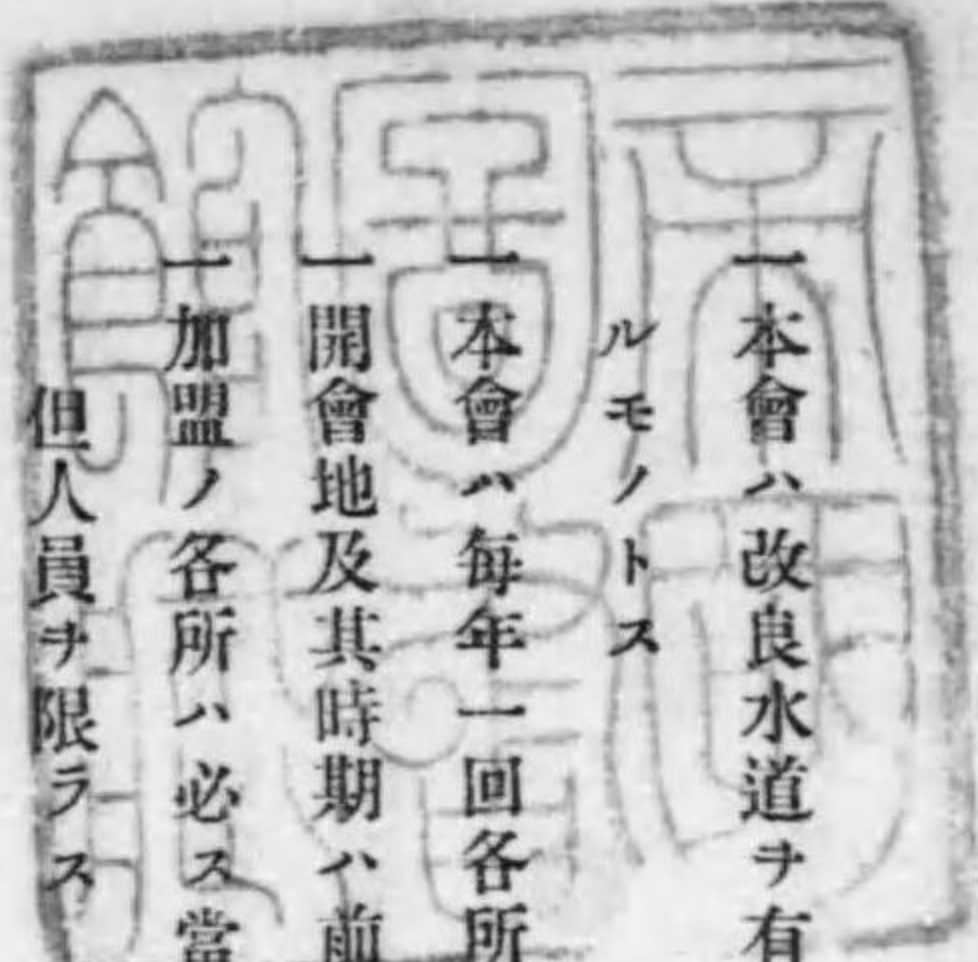 一本會ハ改良水道ヲ有
ルモノトス
一本會ハ毎年一回各所
一開會地及其時期ハ前
一加盟ノ各所ハ必ス當
但人員ヲ限ラス